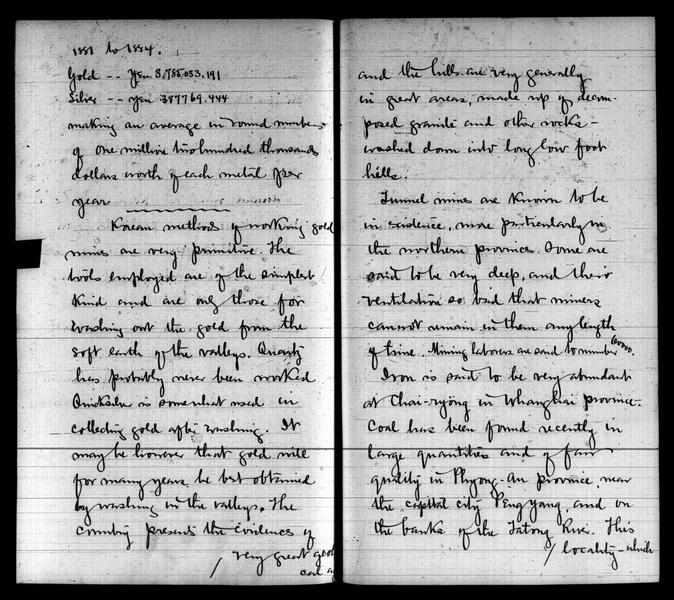 1881 to 1884.
Gold -- Yen 3,785,033.191
Silver -- Yen 387769.444
making an average in round numbers
of one million two hundred thousands
dollars worth of each metal per
year
Korean methods of working gold
mines are very primitive. The
tools employed are of the simplest
kind and are only those for
washing out the gold from the
soft earth of the valleys. Quartz
has probably never been worked
Quicksilver is somewhat used in
collecting gold after washing. It
may be however that gold will
for many years be best obtained
by washing in the valleys. The
country presents the evidences of
very great
and the hills are very generally
in great areas, made up of decom-
posed granite and other rocks -
washed down into long low foot
hills.
Tunnel mines are known to be
in existence, more particularly in
the northern province. Some are
said to be very deep, and their
ventilation so bad that miners
cannot remain in them any length
of time. Mining laborers are said to number
Iron is said to be very abundant
at Chai-ryong in Whanghai province.
Coal has been found recently in
large quantities and of fair
quality in Phyong-An province, near
the capital city Peng Yang, and on
the banks of the Tatong River. This
locality - which